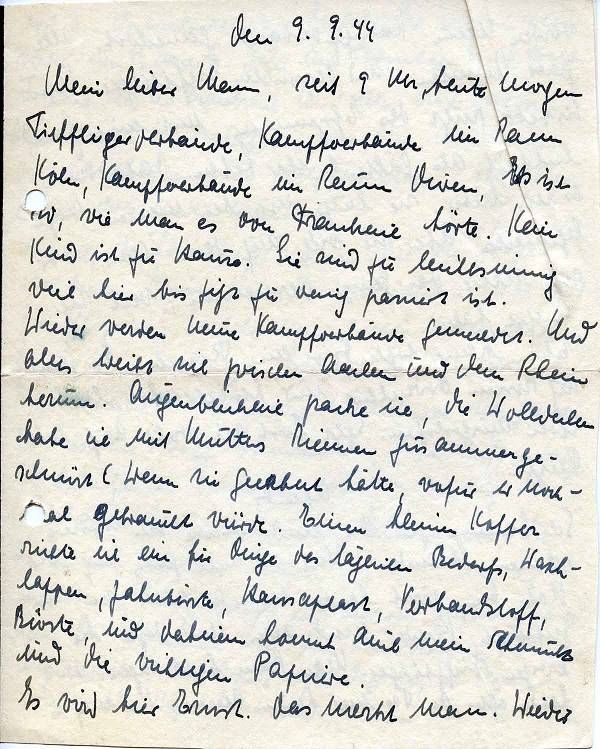 den 9. 9. 44
Mein lieber Mann, seit 9 Uhr, heute Morgen
Tieffliegerverbände, Kampfverbände im Raum
Köln, Kampfverbände im Raum Düren, Es ist
so, wie man es von Frankreich hörte. Kein
Kind ist zu Hause. Sie sind zu leichtsinnig
weil hier bis jetzt zu wenig passiert ist.
Wieder werden neue Kampfverbände gemeldet. Und
alles treibt sich zwischen Aachen und dem Rhein
herum. Augenblicklich packe ich, die Wolldecken
habe ich mit Mutters Riemen zusammenge-
schnürt (Wenn sie geahnt hätte, wofür er noch-
mal gebraucht würde. Einen kleinen Koffer
richte ich ein für Dinge des täglichen Bedarfs, Wasch-
lappen, Zahnbürste, Hansaplast, Verbandstoff,
Bürste, und dahinein kommt auch mein Schmuck
und die wichtigen Papiere.
Es wird hier Ernst. das merkt man. Wieder